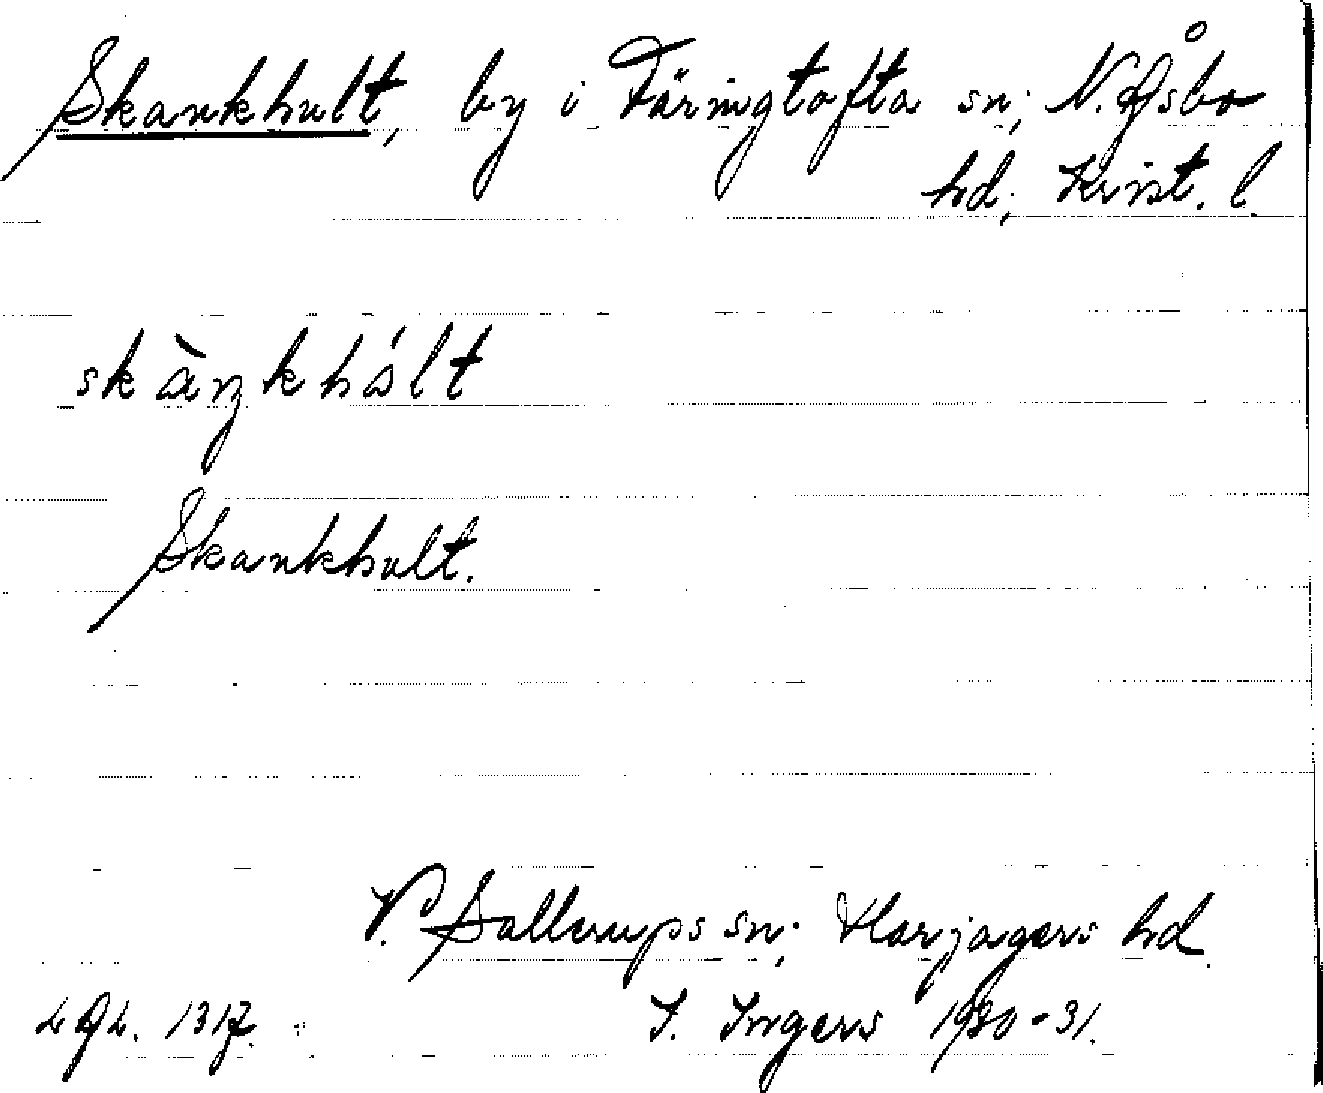 Skankhult, by i Färingtofta sn; N. Åsbo
hd; Krist. l.
skànkhólt
Skankhult.
V. Sallerups sn; Harjagers hd.
LAL. 1317.
I. Ingers 1930-31.